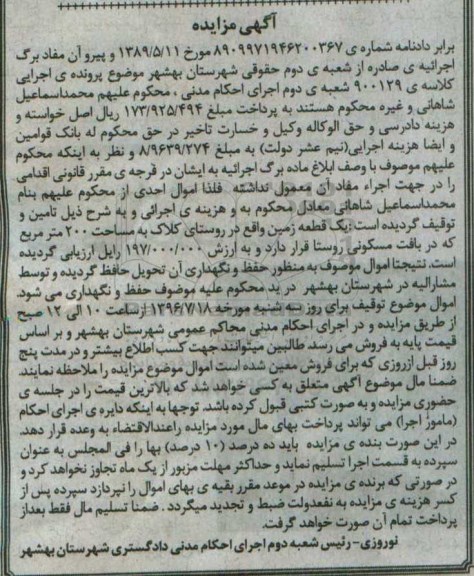 آگهی مزایده
برابر دادنامه شماره ی ۸۹۰۹۹۷۱۹۴۶۲۰۰۳۶۷ مورخ ۱۳۸۹/۵/۱۱ و پیرو آن مفاد برگ
اجرائیه ی صادره از شعبه ی دوم حقوقی شهرستان بهشهر موضوع پرونده ی اجرایی
کلاسه ی ۹۰۰۱۲۹ شعبه ی دوم اجرای احکام مدنی ، محکوم علیهم محمداسماعیل
شاهانی و غیره محکوم هستند به پرداخت مبلغ ۱۷۳/۹۲۵/۴۹۴ ریال اصل خواسته و
هزینه دادرسی و حق الوکاله وکیل و خسارت تاخیر در حق محکوم له بانک قوامین
و ایضا هزینه اجرایی(نیم عشر دولت) به مبلغ ۸/۹۶۳۹/۲۷۴ و نظر به اینکه محکوم
علیهم موصوف با وصف ابلاغ ماده برگ اجرائیه به ایشان در فرجه ی مقرر قانونی اقدامی
را در جهت اجراء مفاد آن معمول نداشته فلذا اموال احدی از محکوم علیهم بنام
محمداسماعیل شاهانی معادل محکوم به و هزینه ی اجرائی و به شرح ذیل تامین و
توقیف گردیده است:یک قطعه زمین واقع در روستای کلاک به مساحت ۲۰۰ متر مربع
که در بافت مسکونی روستا قرار دارد و به ارزش ۱۹۷/۰۰۰/۰۰۰ رایل ارزیابی گردیده
است. نتیجتا اموال موصوف به منظور حفظ و نگهداری آن تحویل حافظ گردیده و توسط
مشارالیه در شهرستان بهشهر در ید محکوم علیه موصوف حفظ و نگهداری می شود.
اموال موضوع توقیف برای روز سه شنبه مورخه ۱۳۹۶/۷/۱۸ از ساعت ۱۰ الی ۱۲ صبح
از طریق مزایده و در اجرای احکام مدنی محاکم عمومی شهرستان بهشهر و بر اساس
قیمت پایه به فروش می رسد. طالبین میتوانند جهت کسب اطلاع بیشتر و در مدت پنج
روز قبل ازروزی که برای فروش معین شده است اموال موضوع مزایده را ملاحظه نمایند.
ضمنا مال موضوع آگهی متعلق به کسی خواهد شد که بالاترین قیمت را در جلسه ی
حضوری مزایده و به صورت کتبی قبول کرده باشد. توجها به اینکه دایره ی اجرای احکام
(مامور اجرا) می تواند پرداخت بهای مال مورد مزایده راعندالاقتضاء به وعده قرار دهد.
در این صورت بنده ی مزایده باید ده درصد (۱۰ درصد) بها را فی المجلس به عنوان
سپرده به قسمت اجرا تسلیم نماید و حداکثر مهلت مزبور از یک ماه تجاوز نخواهد کرد و
در صورتی که برنده ی مزایده در موعد مقرر بقیه ی بهای اموال را نپردازد سپرده پس از
کسر هزینه ی مزایده به نفعدولت ضبط و تجدید میگردد . ضمنا تسلیم مال فقط بعداز
پرداخت تمام آن صورت خواهد گرفت.
نوروزی- رئیس شعبه دوم اجرای احکام مدنی دادگستری شهرستان بهشهر